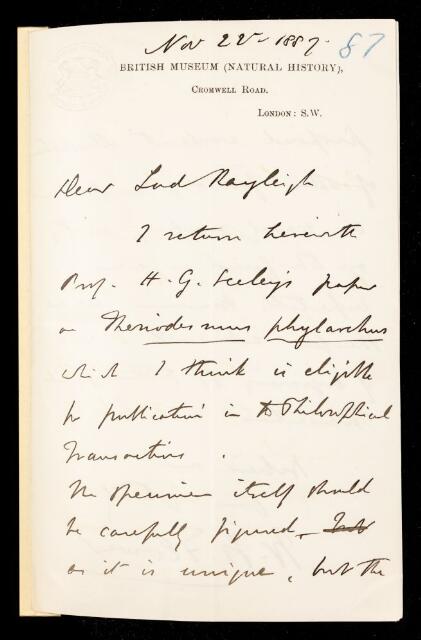 Nov 22 - 1887.
87
BRITISH MUSEUM (NATURAL HISTORY),
CROMWELL ROAD.
LONDON: S.W.
Dear Lord Rayleigh
I return herewith
Prof. H. G. Seeley's paper
on Theriodesmus phylarchus
which I think is eligible
for publication in the Philosophical
Transactions.
The specimen itself should
be carefully figured,
as it is unique, but the